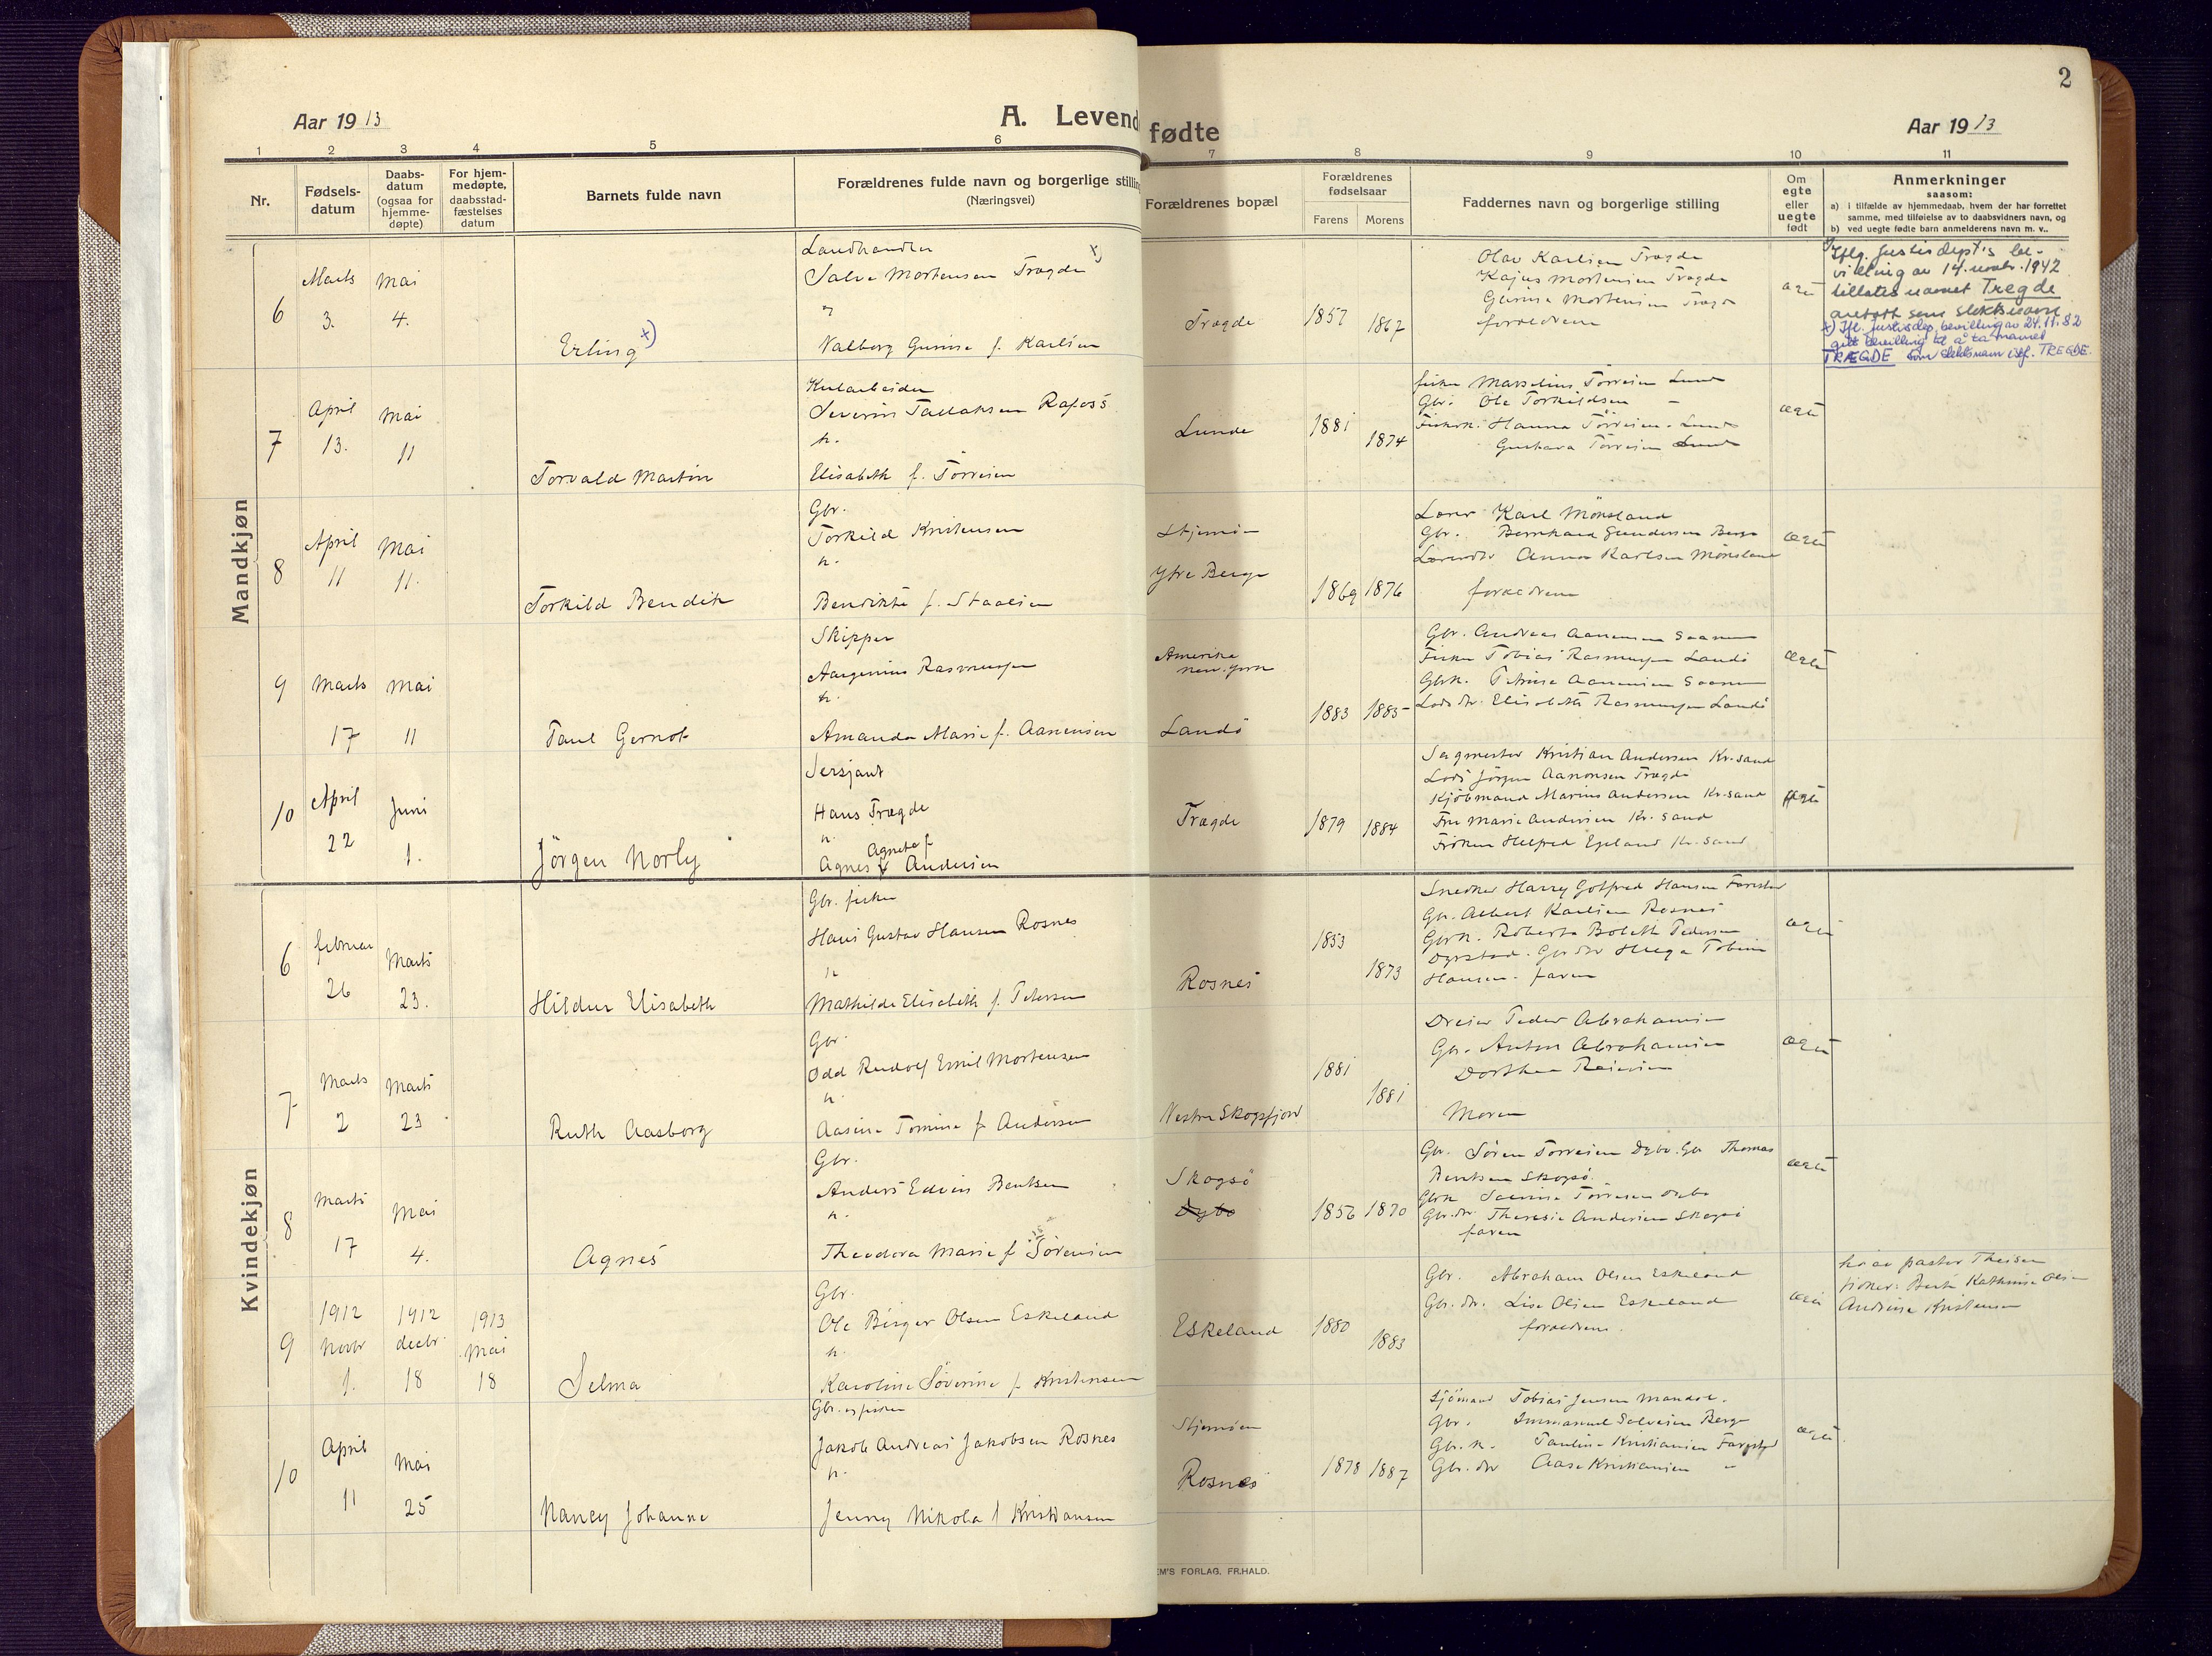 2
Aar 1913
A. Levende fødte
Aar 1913
1 2 3 4 5 6 7 8 9 10 11
Nr.
Fødsels-
datum
Daabs-
datum
(ogsaa for
hjemme-
døpte)
For hjem-
medøpte,
daabsstad-
fæstelses
datum
Barnets fulde navn
Forældrenes fulde navn og borgerlige stillin
(Næringsvei)
Forældrenes bopæl
Forældrenes
fødselsaar
Farens Morens
Faddernes navn og borgerlige stilling
Om
egte
eller
uegte
født
Anmerkninger
saasom:
a) i tilfælde av hjemmedaab, hvem der har forrettet
samme, med tilføielse av to daabsvidners navn, og
b) ved uegte fødte barn anmelderens navn m. v..
Mandkjøn
6
Marts
3.
Mai
4.
Erling x)
Landhandler
Salve Mortensen Trægde x)
og
Valborg Gurine f. Karlsen
Trægde
1857 1867
Olav Karlsen Trægde
Kajus Mortensen Trægde
Gurine Mortensen Trægde
forældrene
ægte
Iflg. Justisdept's be-
villing av 14. novbr. 1942
tillates navnet Tregde
antatt som slektsnavn
x) Ifl. Justisdep. bevilling av 24.11.82
gitt bevilling til å ta navnet
TRÆGDE som slektsnavn istf. TREGDE.
7
April
13.
Mai
11
Torvald Martin
Severin Tallaksen Rafoss
h.
Elisabeth f. Torresen
Lunde
1881 1874
fisker Marselius Torresen Lunde
Gbr. Ole Torkildsen -
Hanna Torresen Lunde
Gustava Torresen Lunde
ægte
8
April
11
Mai
11.
Torkild Bendik
Gbr.
Torkild Kristensen
h.
Bendikte f. Staalsen
Stjernøen
Ytre Berge
1869 1876
Lærer Karl Mønsland
Gbr. Bernhard Gundersen Berge
Anna Karlsen Mønsland
forældrene
ægte
9
Marts
17
Mai
11
Paul Gernot
Skipper
Rasmussen
h.
Amanda Marie f. Aanensen
Amerika
New. York
Landø
1883 1885
Gbr. Andreas Aanensen Saanum
Fisker Tobias Rasmussen Landø
Gbrk. Petrine Aanensen Saanum
Lods dtr. Elisabeth Rasmussen Landø
ægte
10
April
22
Juni
1.
Jörgen Norly
Sersjant
Hans Trægde
h.
Agnete f
Agnes f Andersen
Trægde
1879 1884
Sagmester Kristian Andersen Kr.sand
Lods Jörgen Aanonsen Trægde
Kjöbmand Marius Andersen Kr.sand
Fru Marie Andersen Kr. sand
Fröken Helfred Egeland Kr. sand
ægte
Kvindekjøn
6
februar
26
Marts
23.
Hildur Elisabeth
Gbr. fisker
Hans Gustav Hansen Rosnes
h
Mathilde Elisabeth f. Petersen
Rosnes
1853 1873
Snedker Harry Gotfred Hansen Farestad
Gbr. Albert Karlsen Rosnes
Gbrk. Roberta Boleth Pedersen
Dyrstad. Gbr dtr Helga Tobine
Hansen. faren
ægte
7
Marts
2
Marts
23
Ruth Aasborg
Gbr.
Odd Rudolf Emil Mortensen
h.
Aasine Tomine f Andersen
Vestre Skogsfjord
1881 1881
Dreier Peder Abrahamsen
Gbr. Anton Abrahamsen
Dorthea Reiersen
Moren
ægte
8
Marts
17
Mai
4.
Agnes
Gbr.
Anders Edvin Bentsen
h.
Theodora Marie f Sörensen
Skogsö
Dybo
1856 1870
Gbr. Sören Torresen Dybo. Gbr Thomas
Bentsen Skogsö.
Gbrk Torresen Dybo
Gbr.dtr. Theresie Andersen Skogsö
faren
ægte
9
1912
Novbr
1.
1912
decbr.
18
1913
Mai
18
Selma
Gbr.
Ole Birger Olsen Eskeland
h.
Karoline Söverine f Kristensen
Eskeland
1880 1883
Gbr. Abraham Olsen Eskeland
Gbr. dtr. Lise Olsen Eskeland
forældrene.
ægte
hj. av pastor Theisen
Berte Kathrine Olsen
Andrine Kristensen
10
April
11
Mai
25
Nancy Johanne
Gbr. og fisker
Jakob Andreas Jakobsen Rosnes
h.
Jenny Nikola f Kristiansen
Stjernøen
Rosnes
1878 1887
Sjömand Tobias Jensen Mandal.
Gbr. Immanuel Salvesen Berge
Gbr. k. Pauline Kristiansen Farestad
Gbr. dtr Aase Kristiansen "
ægte
EM'S FORLAG, FR.HALD.